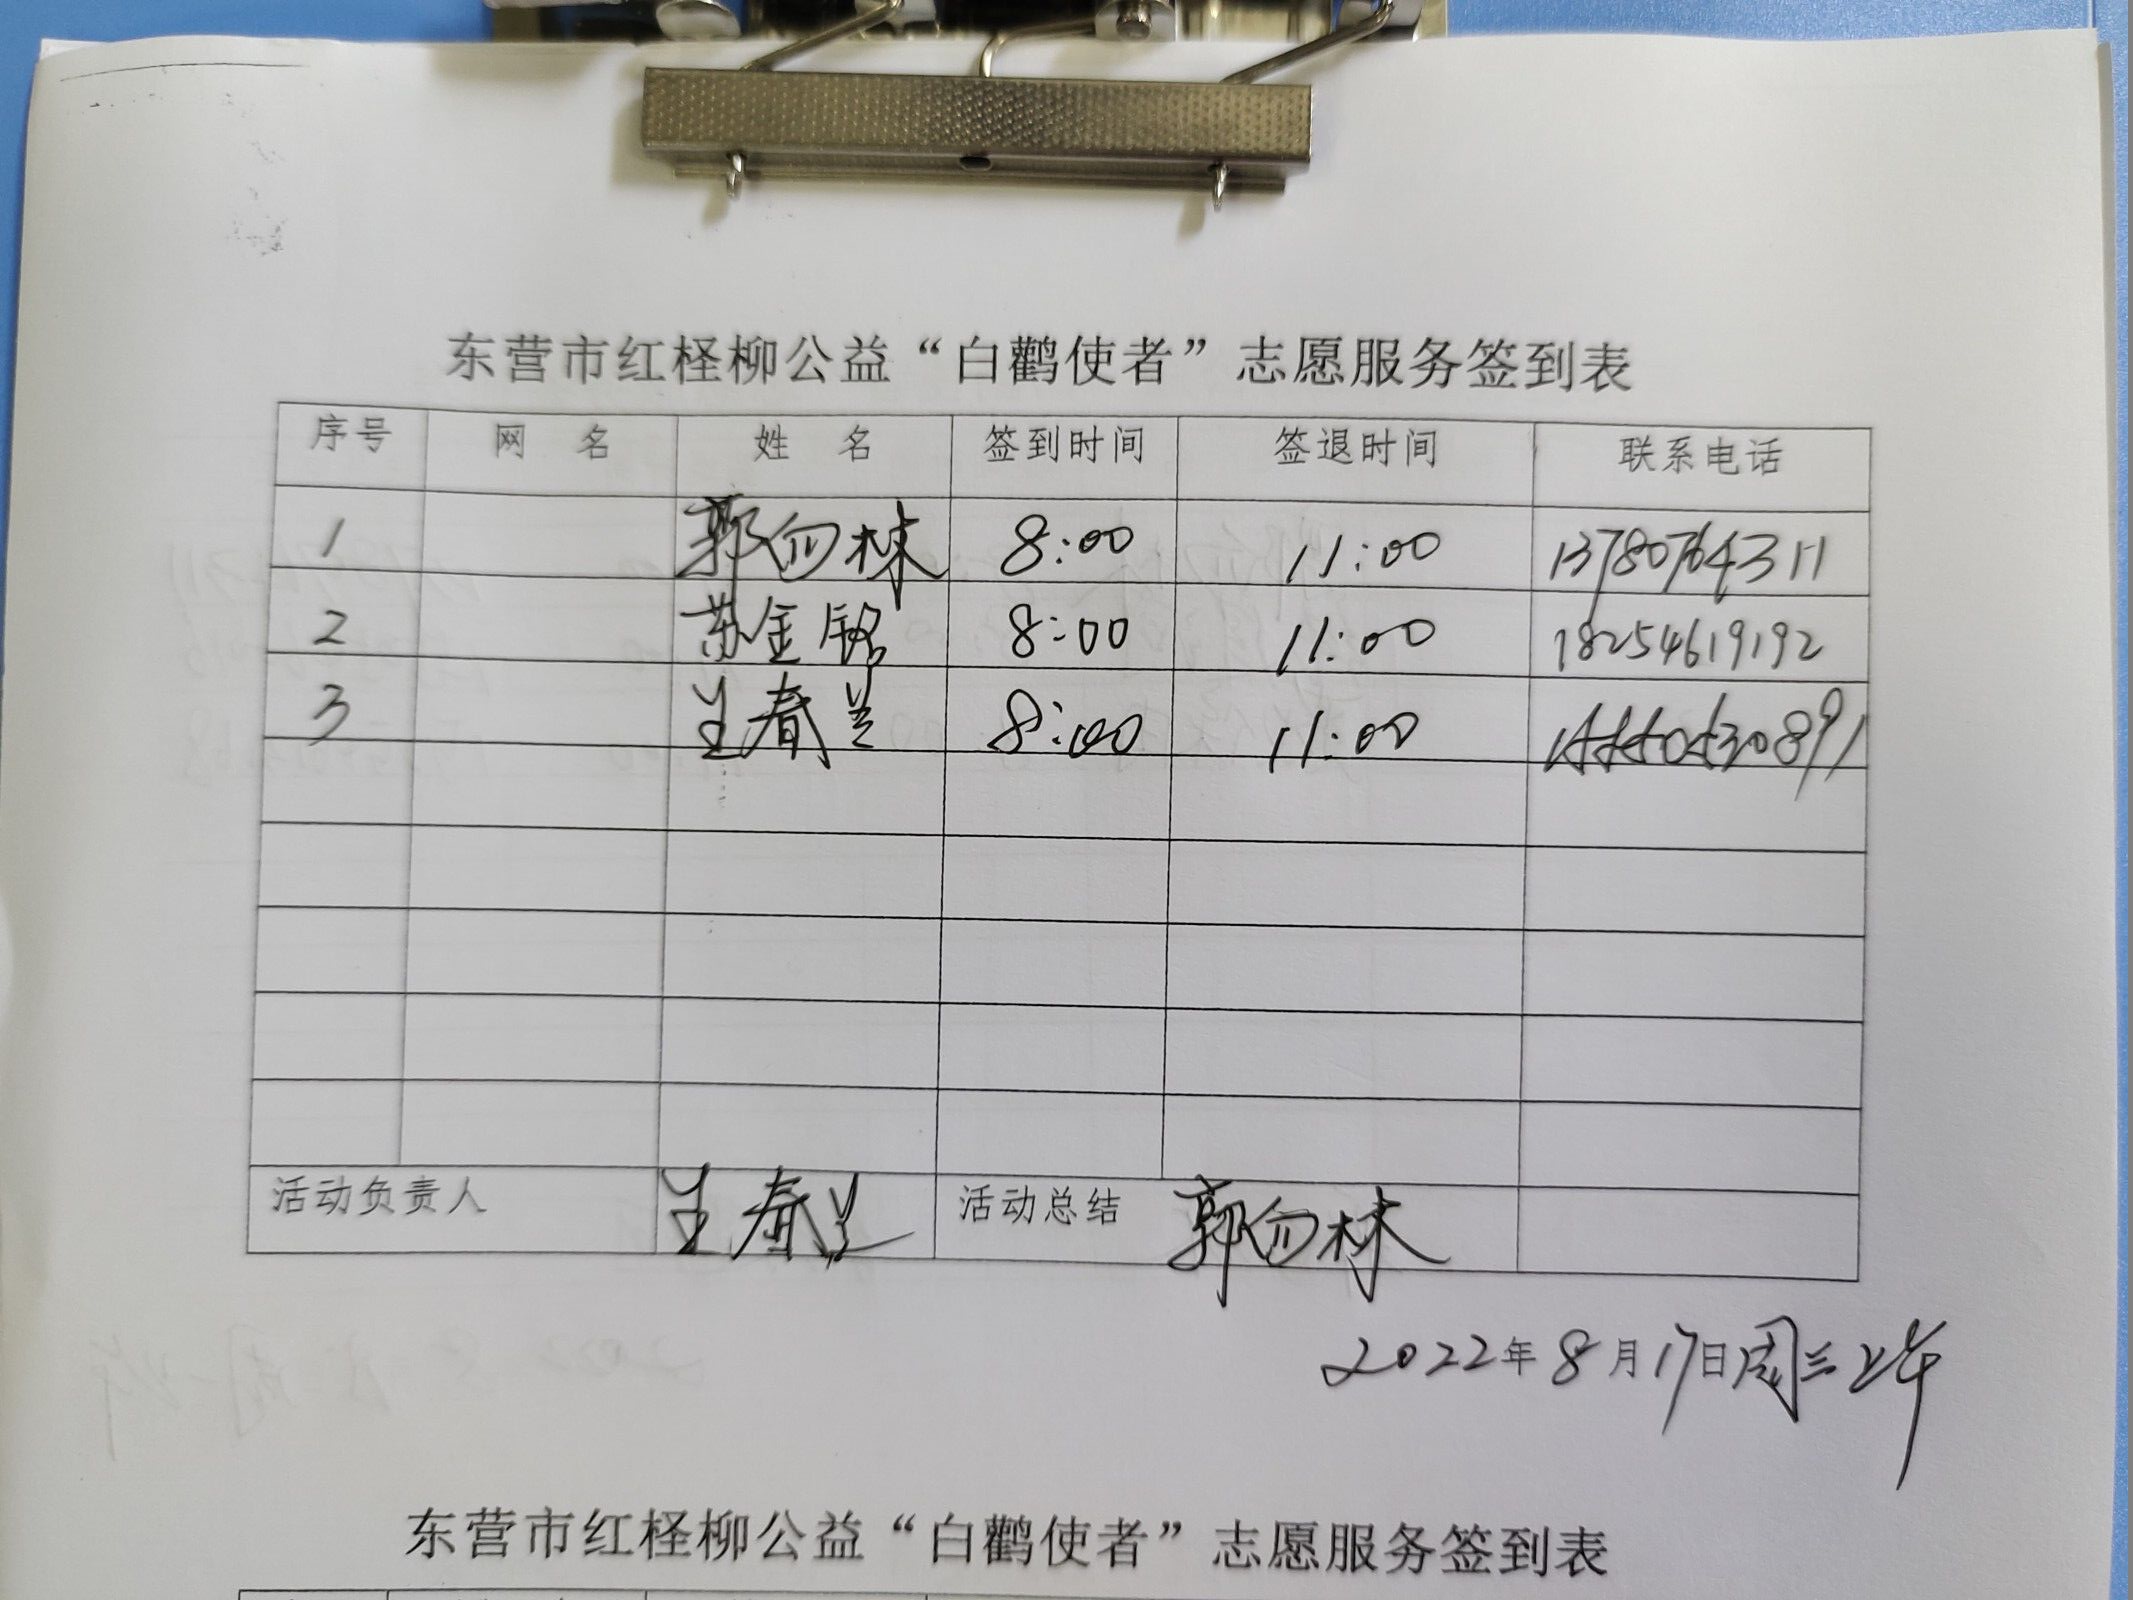 东营市红柽柳公益“白鹳使者”志愿服务签到表
序号 网 名 姓 名 签到时间 签退时间 联系电话
1 郭向林 8:00 11:00 13780764311
2 苏金铭 8:00 11:00 18254619192
3 王春兰 8:00 11:00
活动负责人 王春兰 活动总结 郭向林
2022年8月17日周三上午
东营市红柽柳公益“白鹳使者”志愿服务签到表